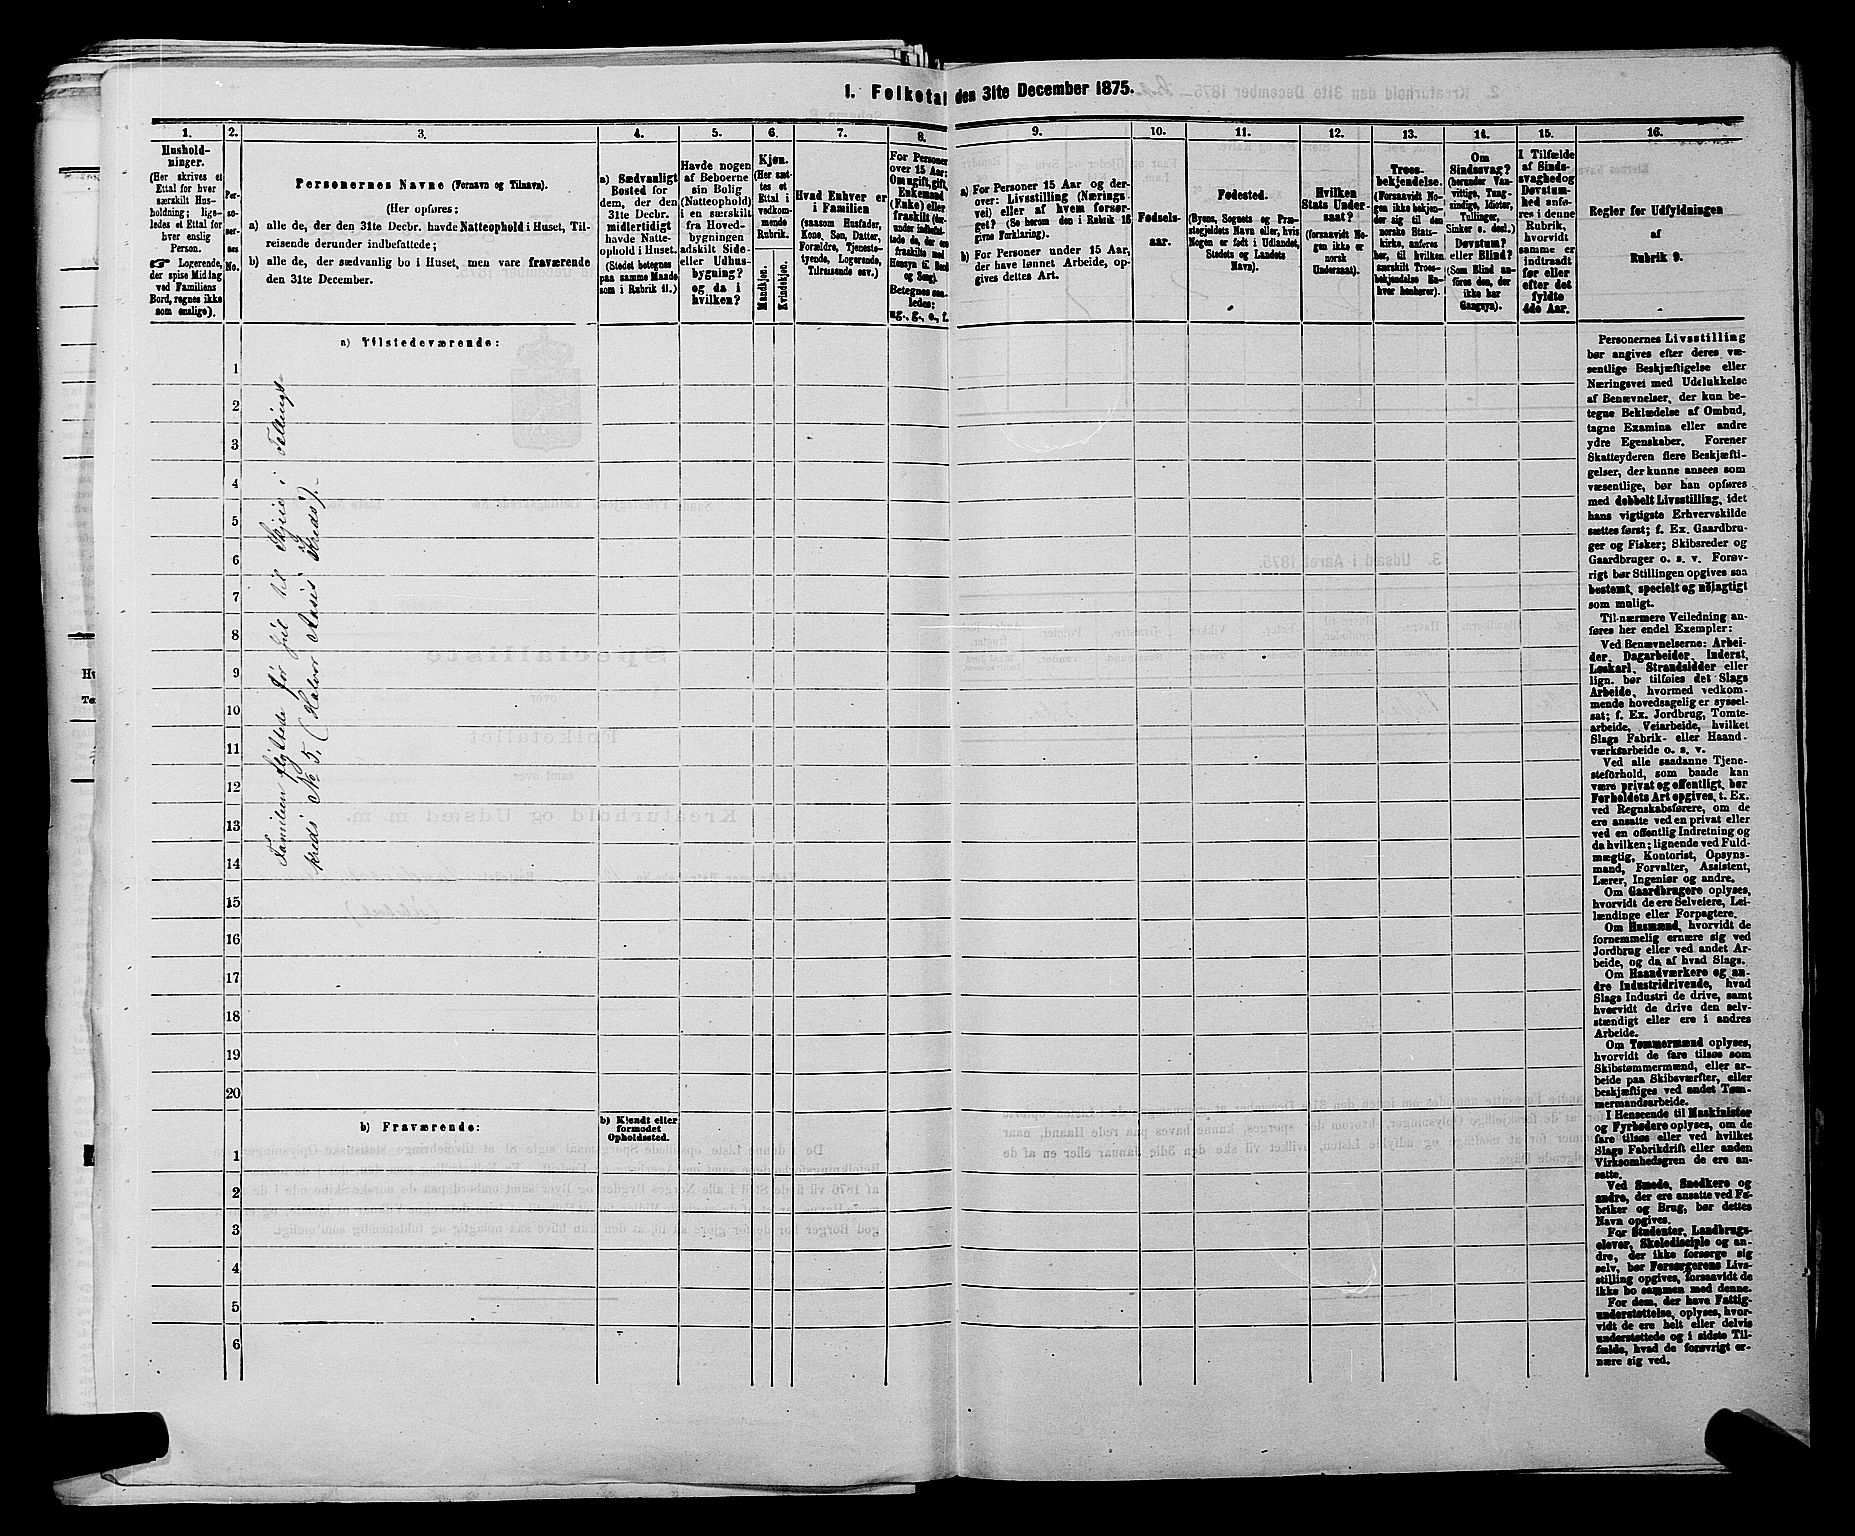 1. Folketal den 31te December 1875.
1.
Hushold-
ninger.
(Her skrives et
Ettal for hver
særskilt Hus-
holdning; lige-
ledes et Ettal for
hver enslig
Person.
☞ Logerende,
der spise Middag
ved Familiens
Bord, regnes ikke
som enslige).
2.
Per-
so-
ner-
nes
No.
3.
Personernes Navne (Fornavn og Tilnavn).
(Her opføres:
a) alle de, der den 31te Decbr. havde Natteophold i Huset, Til-
reisende derunder indbefattede;
b) alle de, der sædvanlig bo i Huset, men vare fraværende
den 31te December.
4.
a) Sædvanligt
Bosted for
dem, der den
31te Decbr.
midlertidigt
havde Natte-
ophold i Huset.
(Stedet betegnes
paa samme Maade
som i Rubrik 11.)
5.
Havde nogen
af Beboerne
sin Bolig
(Natteophold)
i en særskilt
fra Hoved-
bygningen
adskilt Side-
eller Udhus-
bygning?
og da i
hvilken?
6.
Kjøn.
(Her sæt-
tes et
Ettal i
vedkom-
mende
Rubrik.
Mandkjøn.
Kvindekjøn.
7.
Hvad Enhver er
i Familien
(saasom Husfader,
Kone, Søn, Datter,
Forældre, Tjeneste-
tyende, Logerende,
Tilreisende osv.)
8.
For Personer
over 15 Aar:
Om ugift, gift,
Enkemand
(Enke) eller
fraskilt (der-
under indbefat-
tede de, der ere
fraskilte med
Hensyn til Bord
og Seng).
Betegnes saa-
ledes:
ug., g., e., f.
9.
a) For Personer 15 Aar og der-
over: Livsstilling (Nærings-
vei) eller af hvem forsør-
get? (Se herom den i Rubrik 16
givne Forklaring).
b) For Personer under 15 Aar,
der have lønnet Arbeide, op-
gives dettes Art.
10.
Fødsels-
aar.
11.
Fødested.
(Byens, Sognets og Præ-
stegjeldets Navn eller, hvis
Nogen er født i Udlandet,
Stedets og Landets
Navn).
12.
Hvilken
Stats Under-
saat?
(forsaavidt No-
gen ikke er
norsk
Undersaat).
13.
Troes-
bekjendelse.
(Forsaavidt No-
gen ikke bekjen-
der sig til den
norske Stats-
kirke, anføres
her, til hvilken
særskilt Troes-
bekjendelse En-
hver henhører).
14.
Om
Sindssvag?
(herunder Van-
vittige, Tung-
sindige, Idioter,
Tullinger,
Sinker o. desl.)
Døvstum?
eller Blind?
(Som Blind an-
føres den, der
ikke har
Gangsyn).
15.
I Tilfælde
af Sinds-
svaghed og
Døvstum-
hed anfø-
res i denne
Rubrik,
hvorvidt
samme er
indtraadt
før eller
efter det
fyldte
4de Aar.
16.
Regler for Udfyldningen
af
Rubrik 9.
a) Tilstedeværende:
1
2
3
4
5
6
7
8
9
10
11
12
13
14
15
16
17
18
19
20
Familien flyttede før Jul til Skjeie i Tællings-
kreds No 5, (Halvor Aases Kreds).
b) Fraværende:
b) Kjendt eller
formodet
Opholdssted.
1
2
3
4
5
6
Personernes Livsstilling
bør angives efter deres væ-
sentlige Beskjæftigelse eller
Næringsvei med Udelukkelse
af Benævnelser, der kun be-
tegne Beklædelse af Ombud,
tagne Examina eller andre
ydre Egenskaber. Forener
Skatteyderen flere Beskjæfti-
gelser, der kunne ansees som
væsentlige, bør han opføres
med dobbelt Livsstilling, idet
hans vigtigste Erhvervskilde
sættes først; f. Ex. Gaardbru-
ger og Fisker; Skibsreder og
Gaardbruger o. s. v. Forøv-
rigt bør Stillingen opgives saa
bestemt, specielt og nøiagtigt
som muligt.
Til nærmere Veiledning an-
føres her endel Exempler:
Ved Benævnelserne: Arbei-
der, Dagarbeider, Inderst,
Løskarl, Strandsidder eller
lign. bør tilføies det Slags
Arbeide, hvormed vedkom-
mende hovedsagelig er syssel-
sat; f. Ex. Jordbrug, Tomte-
arbeide, Veiarbeide, hvilket
Slags Fabrik- eller Haand-
værksarbeide o. s. v.
Ved alle saadanne Tjene-
steforhold, som baade kan
være privat og offentligt, bør
Forholdets Art opgives, t. Ex.
ved Regnskabsførere, om de
ere ansatte ved en privat eller
ved en offentlig Indretning og
da hvilken; lignende ved Fuld-
mægtig, Kontorist, Opsyns-
mand, Forvalter, Assistent,
Lærer, Ingeniør og andre.
Om Gaardbrugere oplyses,
hvorvidt de ere Selveiere, Lei-
lændinge eller Forpagtere.
Om Husmænd, hvorvidt de
fornemmelig ernære sig ved
Jordbrug eller ved andet Ar-
beide, og da af hvad Slags.
Om Haandværkere og an-
dre Industridrivende, hvad
Slags Industri de drive, samt
hvorvidt de drive den selv-
stændigt eller ere i andres
Arbeide.
Om Tømmermænd oplyses,
hvorvidt de fare tilsøs som
Skibstømmermænd, eller ar-
beide paa Skibsværfter, eller
beskjæftiges ved andet Tøm-
mermandsarbeide.
I Henseende til Maskinister
og Fyrbødere oplyses, om de
fare tilsøs eller ved hvilket
Slags Fabrikdrift eller anden
Virksomhedsgren de ere an-
satte.
Ved Smede, Snedkere og
andre, der ere ansatte ved Fa-
briker og Brug, bør dettes
Navn opgives.
For Studenter, Landbrugs-
elever, Skoledisciple og an-
dre, der ikke forsørge sig
selv, bør Forsørgerens Livs-
stilling opgives, forsaavidt de
ikke bo sammen med denne.
For dem, der have Fattig-
understøttelse, oplyses, hvor-
vidt de ere helt eller delvis
understøttede og i sidste Til-
fælde, hvad de forøvrigt er-
nære sig ved.